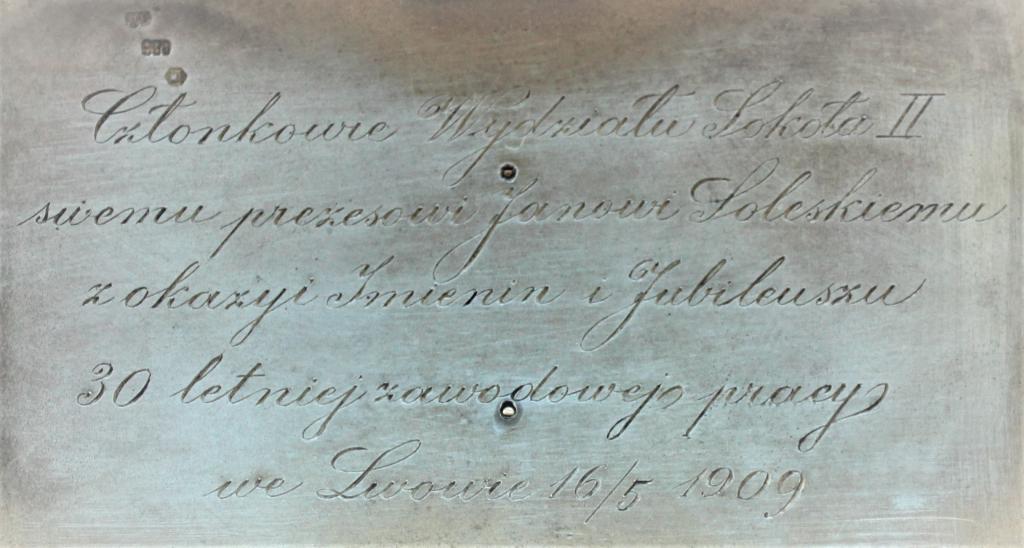 Członkowie Wydziału Sokoła II
swemu prezesowi Janowi Soleskiemu
z okazyi Imienin i Jubileuszu
30 letniej zawodowej pracy
we Lwowie 16/5 1909